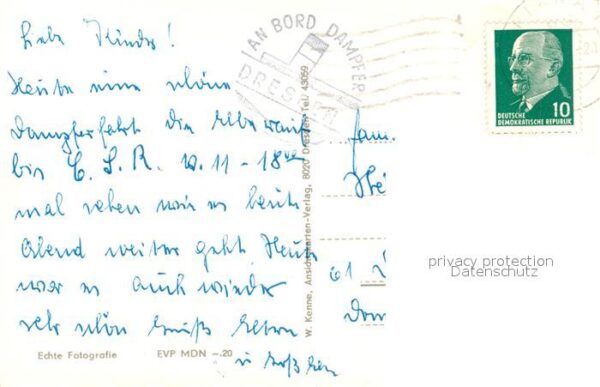 Liebe Kinder!
Heute eine schöne
Dampferfahrt die Elbe rauf
bis C.S.R. v. 11 - 18 Uhr
mal sehen wie es heute
Abend weiter geht. Heute
war es auch wieder
sehr schön Gruß Eltern
u
Echte Fotografie EVP MDN -.20
W. Kenne, Ansichtskarten-Verlag, 8020 Dresden Tel. 43059
AN BORD DAMPFER
DRESDEN
DEUTSCHE
DEMOKRATISCHE REPUBLIK
10
Fam.
61
privacy protection
Datenschutz